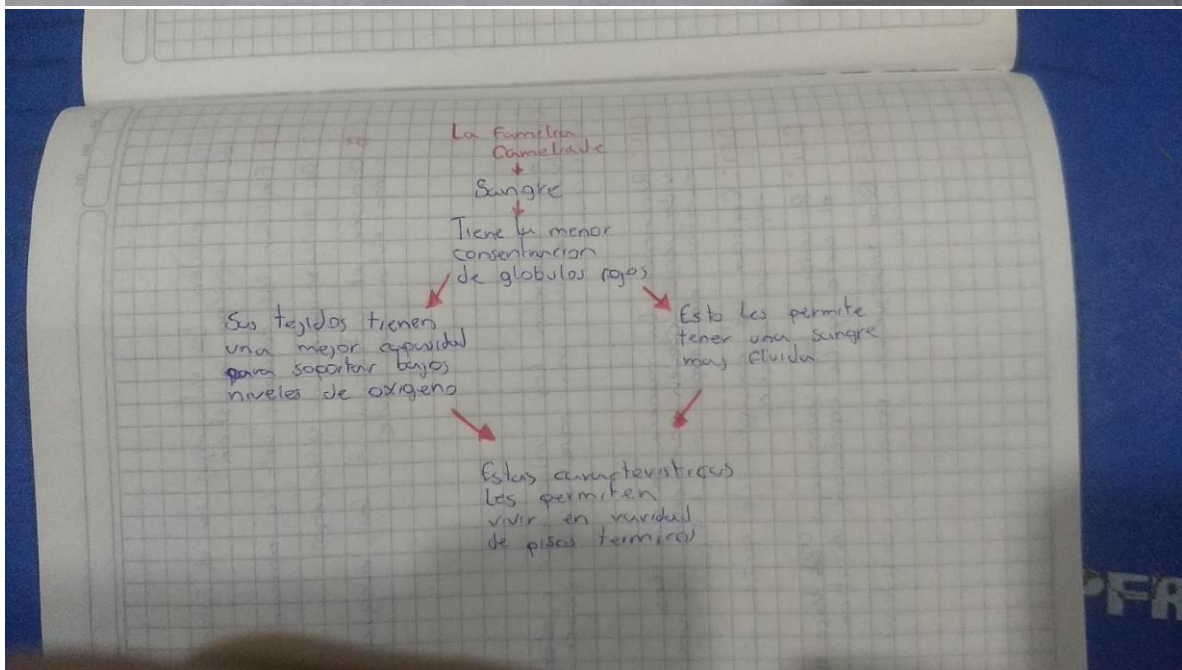 La Familia
Camelhade
Sangre
Tiene la menor
consentracion
de globulos rojos
Sus tejidos tienen
una mejor capasidad
para soportar bajos
niveles de oxigeno
Esto les permite
tener una sangre
mas fluida
Estas caracteristicas
Les permiten
vivir en varidad
de pisos termicos